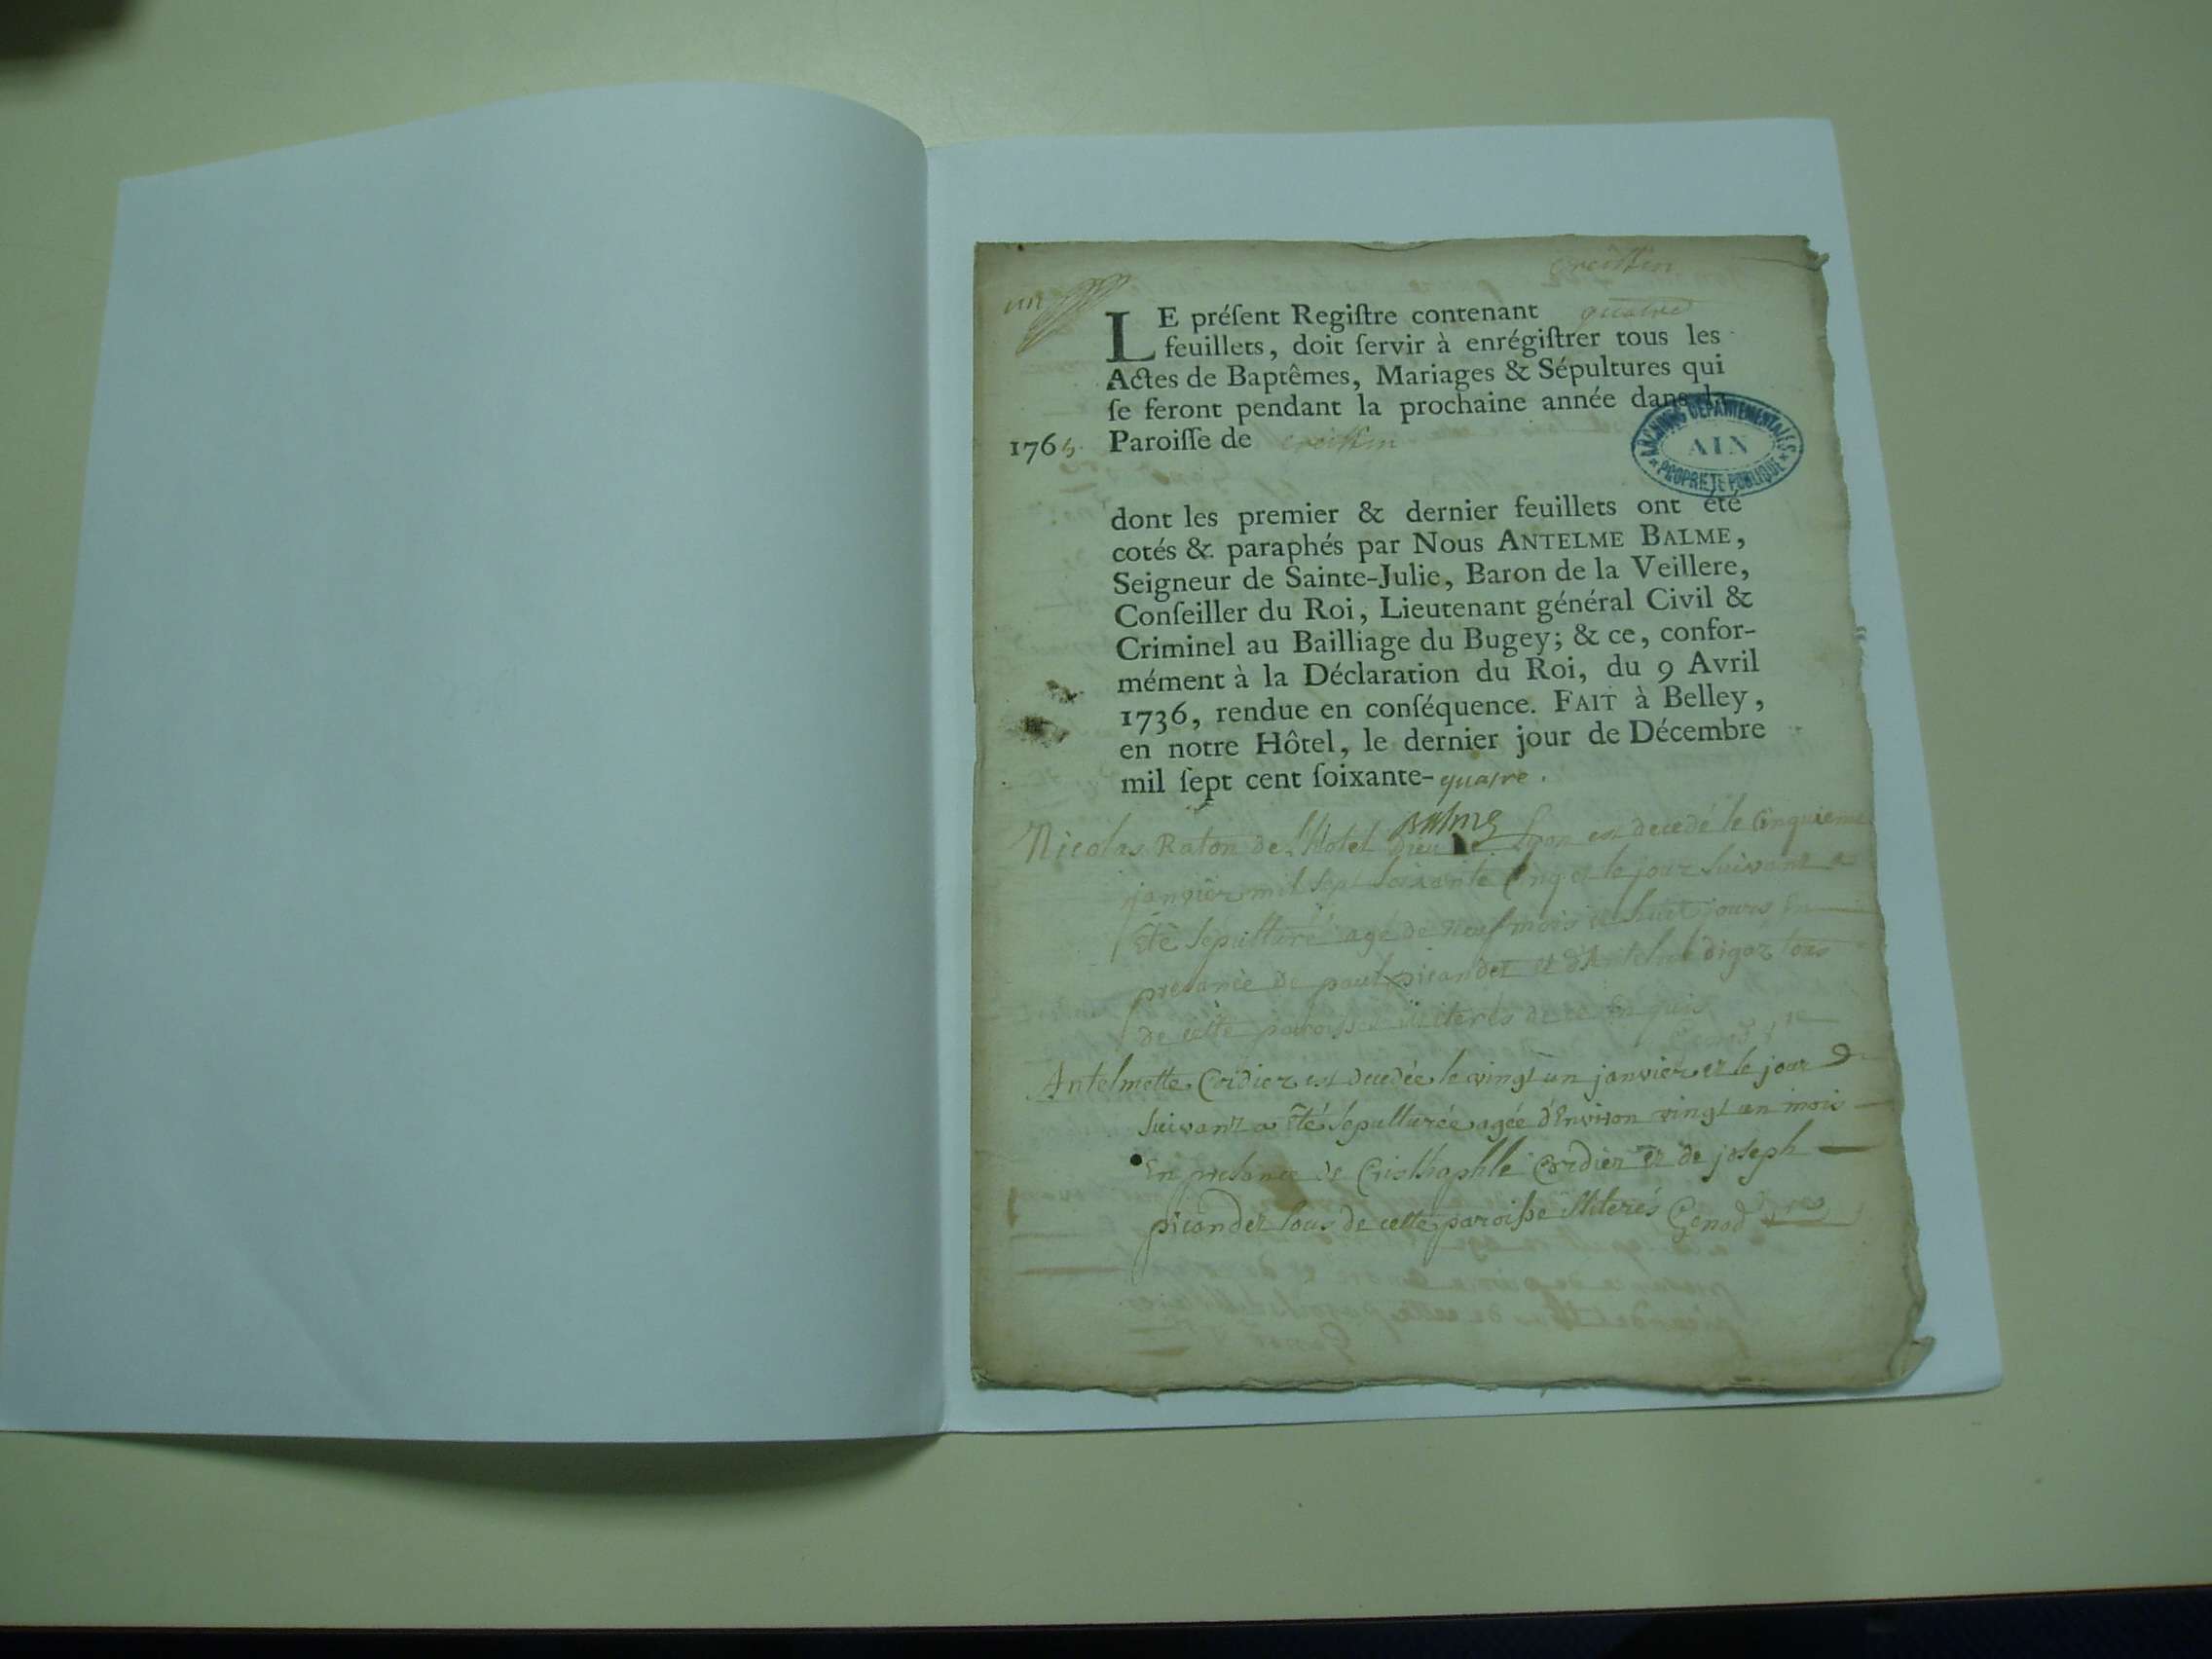 un
creissin
LE préſent Regiſtre contenant quatre
feuillets, doit ſervir à enrégiſtrer tous les
Actes de Baptêmes, Mariages & Sépultures qui
ſe feront pendant la prochaine année dans la
1765. Paroiſſe de creissin
ARCHIVES DEPARTEMENTALES
AIN
* PROPRIETE PUBLIQUE *
dont les premier & dernier feuillets ont été
cotés & paraphés par Nous ANTELME BALME,
Seigneur de Sainte-Julie, Baron de la Veillere,
Conſeiller du Roi, Lieutenant général Civil &
Criminel au Bailliage du Bugey; & ce, confor-
mément à la Déclaration du Roi, du 9 Avril
1736, rendue en conſéquence. FAIT à Belley,
en notre Hôtel, le dernier jour de Décembre
mil ſept cent ſoixante-quatre.
Balme
Nicolas Raton de l'Hotel Dieu de Lyon est decedé le Cinquieme
janvier mil sept soixante Cinq et le jour suivant a
Eté sepulturé agé de neuf mois et huit jours En
presance de paul picandet et d'Antelme digoz tous
de cette paroisse illiterés de ce Enquis
Genod
Antelmette Cordier est decedée le vingt un janvier et le jour
suivant a Eté sepulturée agée d'Environ vingt un mois
En presance de Cristhophle Cordier et de joseph
picandet tous de cette paroisse illiterés Genod